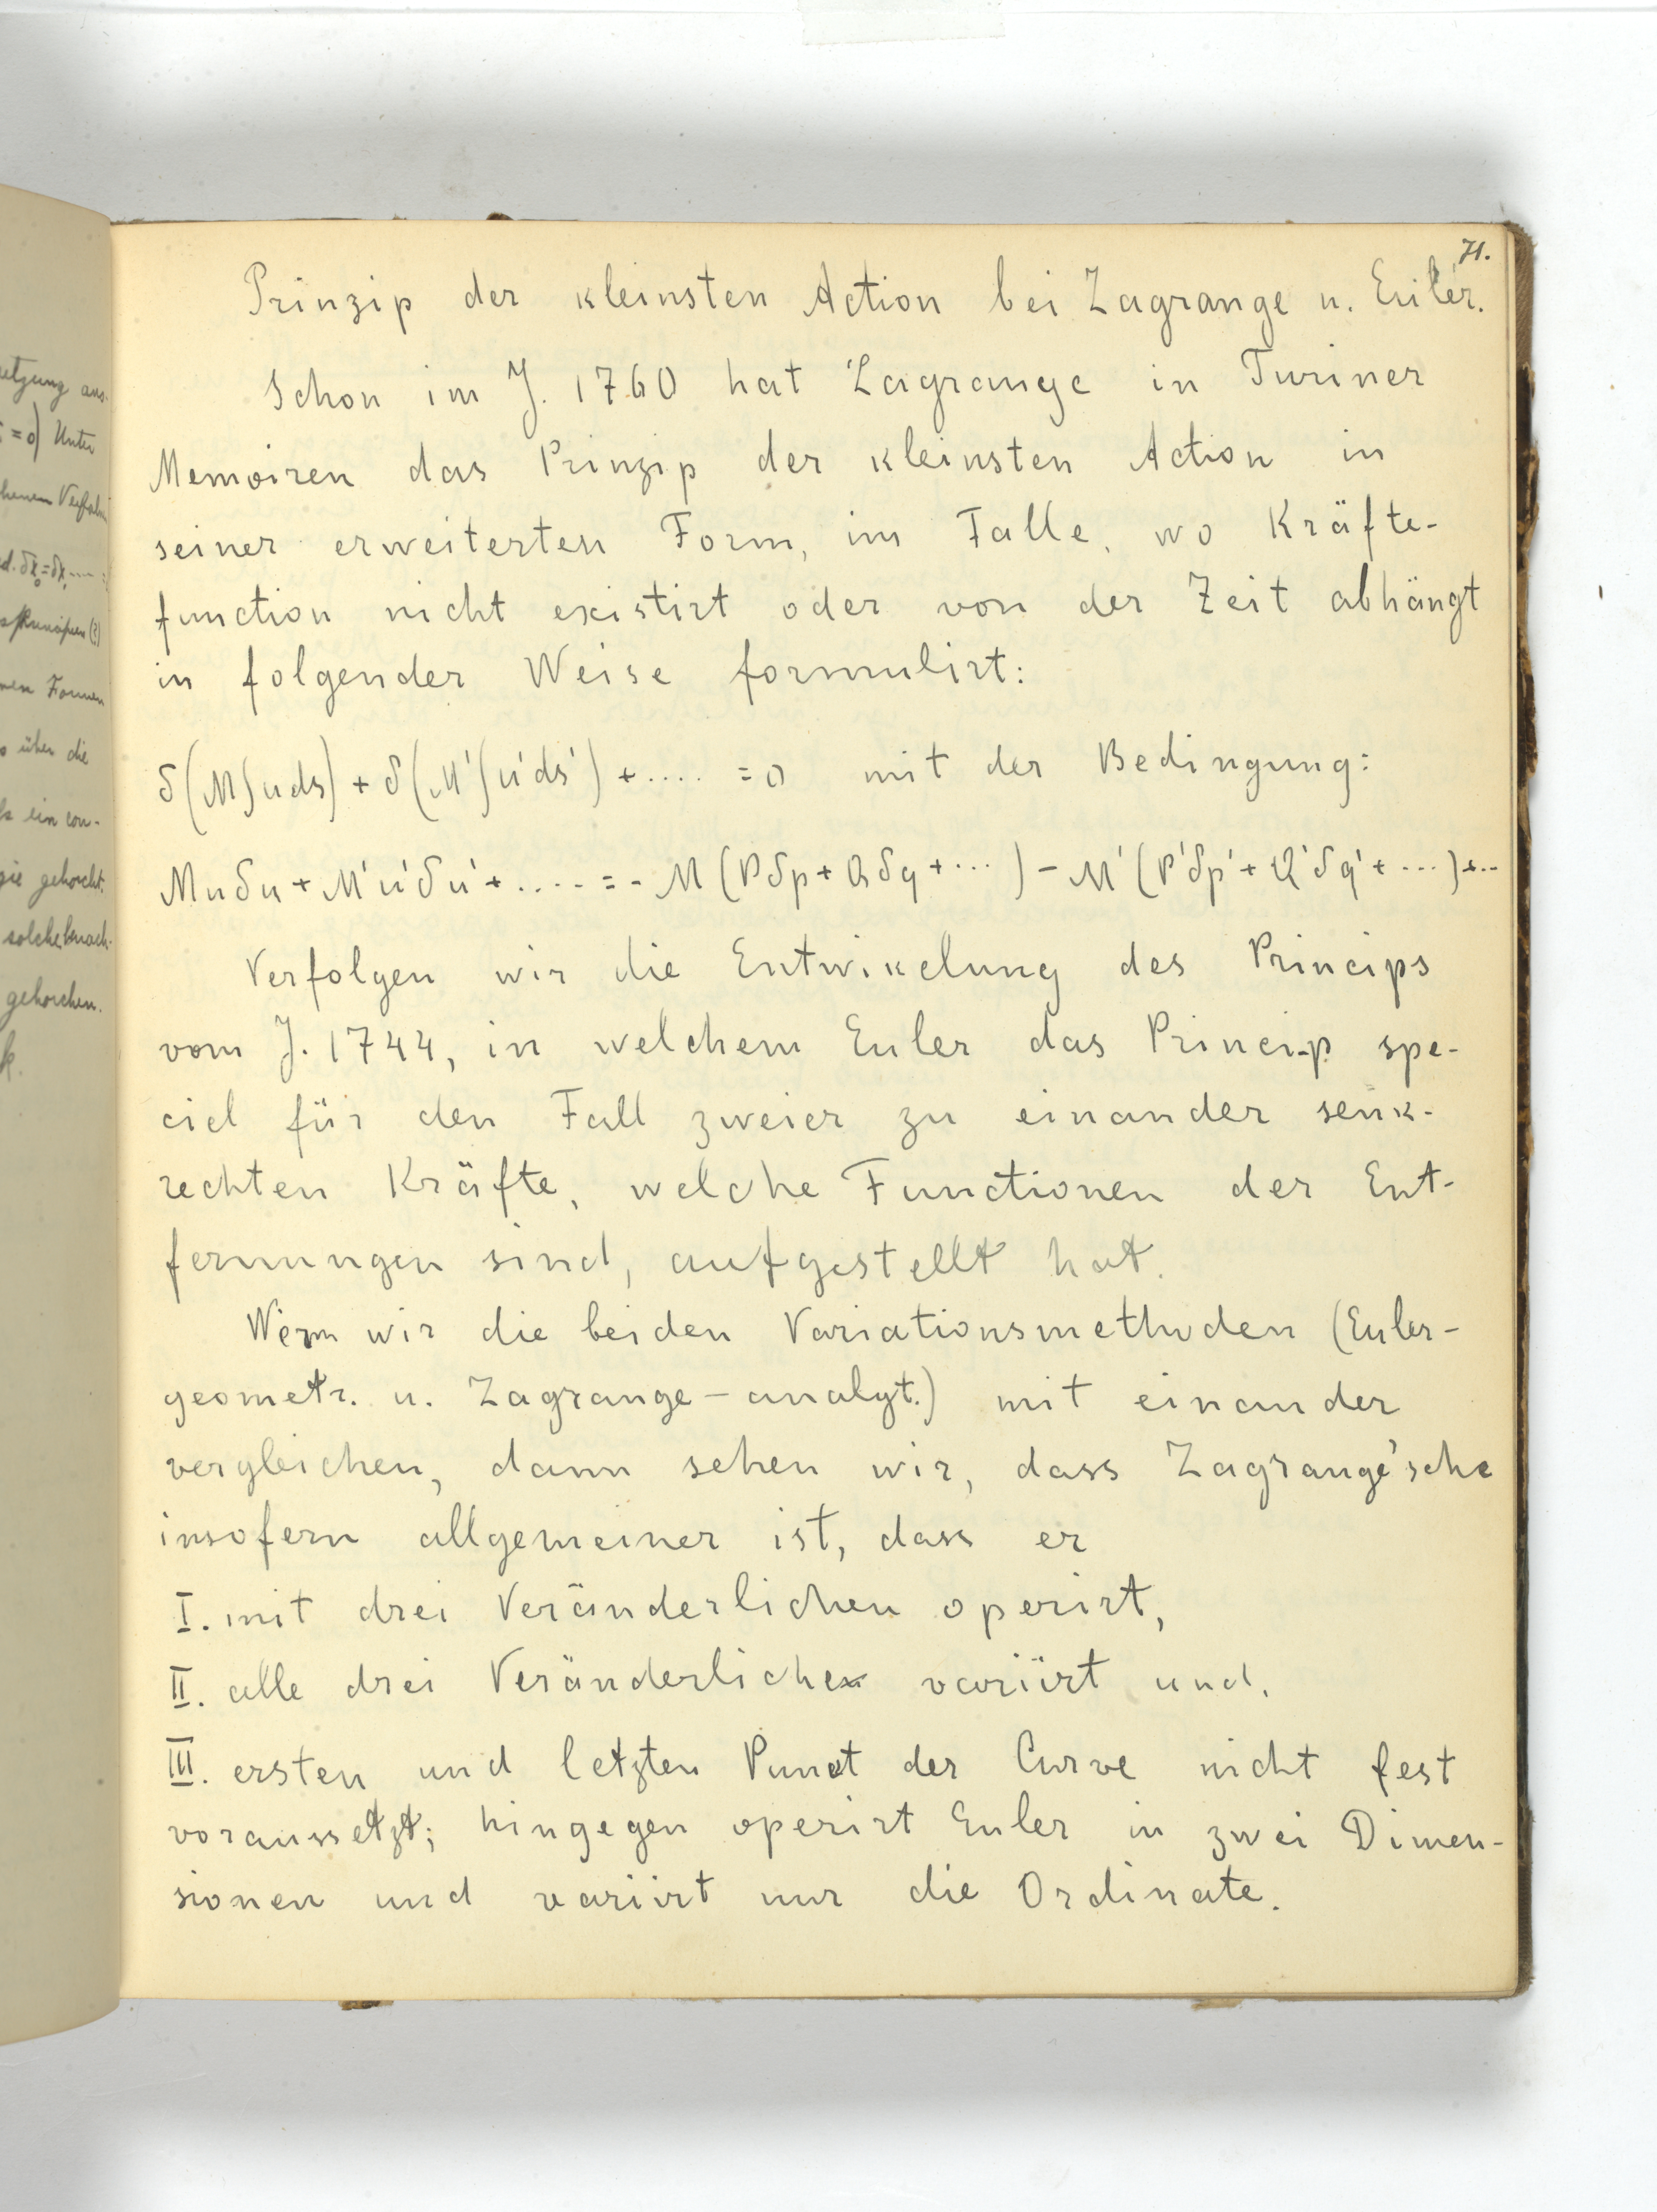 71.
Prinzip der kleinsten Action bei Lagrange u. Euler.
Schon im J. 1760 hat Lagrange in Turiner
Memoiren das Prinzip der kleinsten Action in
seiner erweiterten Form, im Falle, wo Kräfte-
function nicht existirt oder von der Zeit abhängt
in folgender Weise formulirt:
δ(M∫uds) + δ(M'∫u'ds') + .... = 0 mit der Bedingung:
Muδu + M'u'δu' + .... = - M(Pδp + Qδq + ...) - M'(P'δp' + Q'δq' + ...) + ..
Verfolgen wir die Entwikelung des Princips
vom J. 1744, in welchem Euler das Princip spe-
ciel für den Fall zweier zu einander senk-
rechten Kräfte, welche Functionen der Ent-
fernungen sind, aufgestellt hat.
Wenn wir die beiden Variationsmethoden (Euler-
geometr. u. Lagrange - analyt.) mit einander
vergleichen, dann sehen wir, dass Lagrange'sche
insofern allgemeiner ist, dass er
I. mit drei Veränderlichen operirt,
II. alle drei Veränderlichen variirt und,
III. ersten und letzten Punct der Curve nicht fest
voraussetzt; hingegen operirt Euler in zwei Dimen-
sionen und variirt nur die Ordinate.
etzung aus.
= 0) Unter
chenen
men Formen
o über die
ls ein con-
gie gehorcht.
solche
gehorchen.
k.